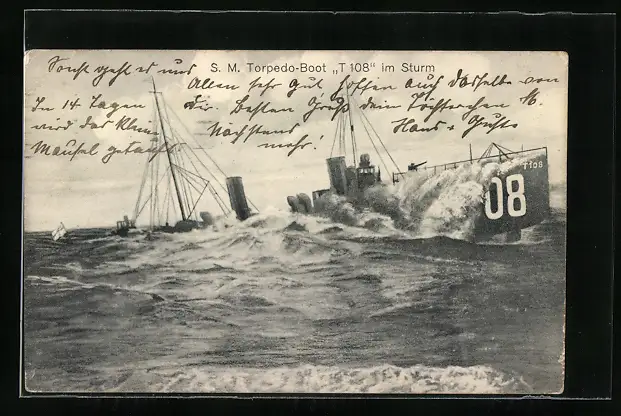 S. M. Torpedo-Boot „T 108" im Sturm
Sonst geht es uns
Allen sehr gut, hoffen auch dasselbe von
Dir. Besten Gruß dein Töchterchen M.
Hans +
In 14 Tagen
wird das kleine
Mausel getauft
Nachstend
mehr!
T108
08